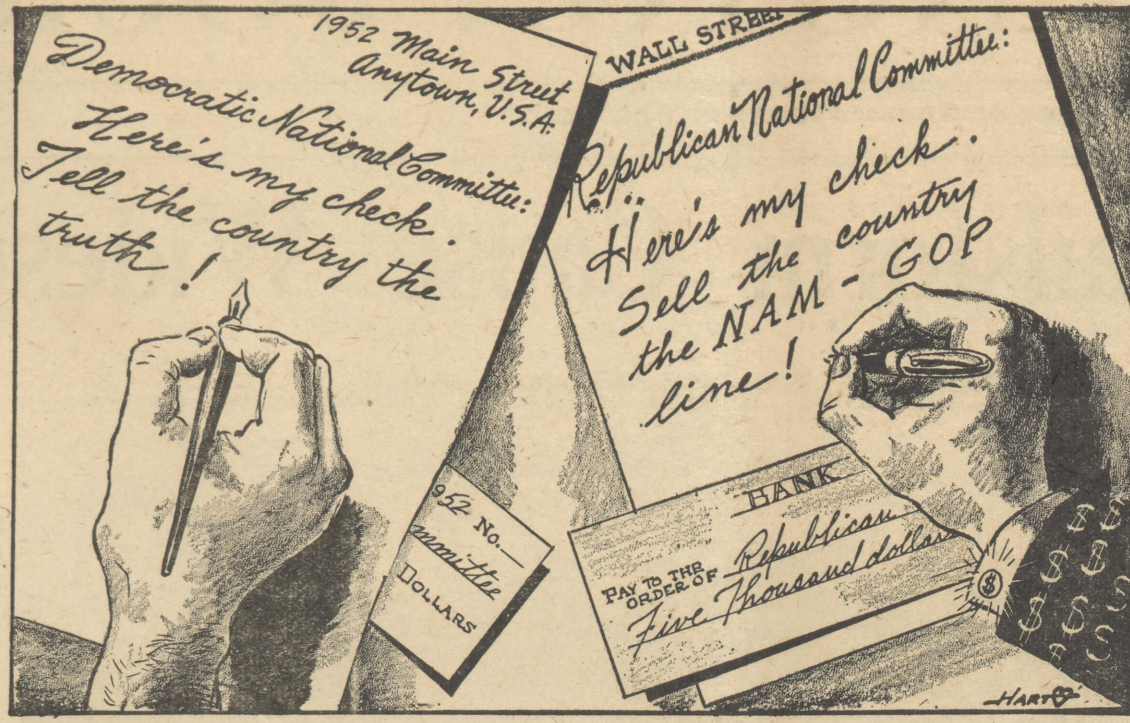 1952 Main Street
Anytown, U.S.A.
Democratic National Committee:
Here's my check.
Tell the country the
truth!
952 No.
mmittee
DOLLARS
WALL STREET
Republican National Committee:
Here's my check.
Sell the country
the NAM - GOP
line!
BANK
PAY TO THE
ORDER OF Republican
Five Thousand dollars
$
$ $
$ $
$ $
HART